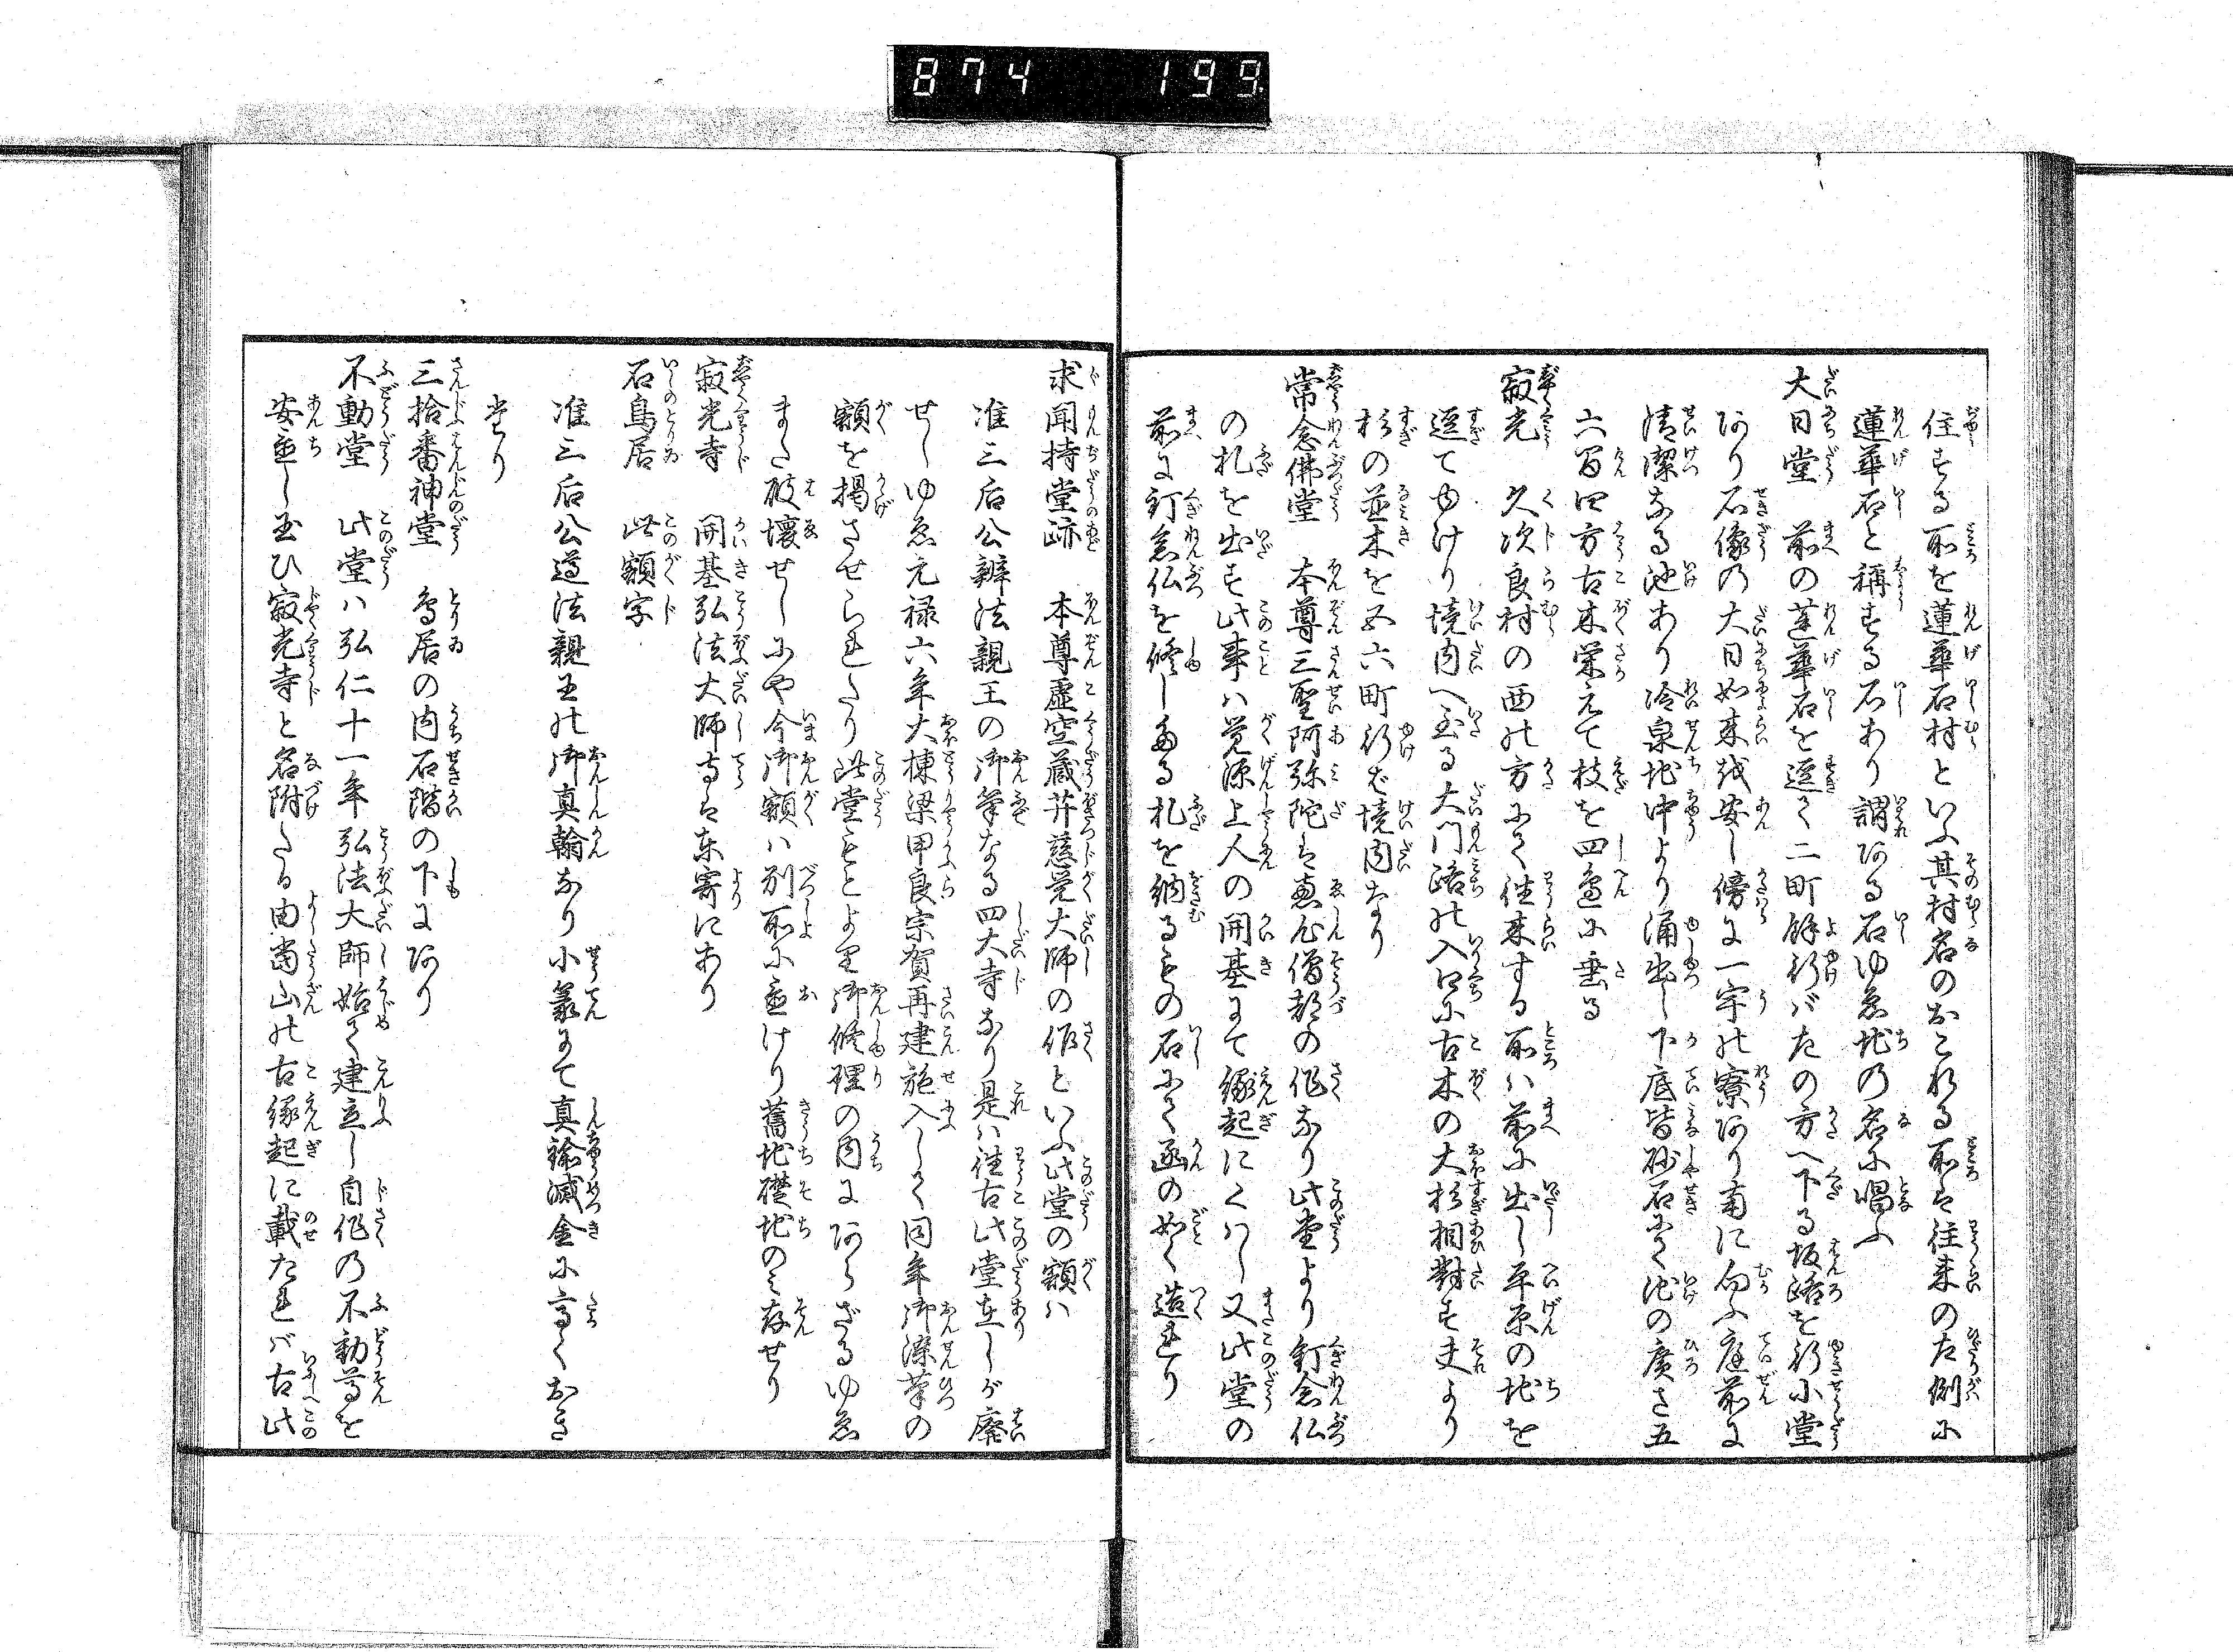 874 199
住する所を蓮華石村といふ其村名のおこれる所は往来の左側に
蓮華石と称する石あり謂ある石ゆゑ地の名に唱ふ
大日堂 前の蓮華石を過て二町餘行ば左の方へ下る坂路を行小堂
あり石像の大日如来を安し傍に一宇の寮あり南に向ふ庭前に
清潔なる池あり冷泉地中より涌出し下底皆砂石にて池の広さ五
六間四方古木栄えて枝を四邊に垂る
寂光 久次良村の西の方にて往来する所は前に出し平原の地を
過てゆけり境内へ至る大門路の入口に古木の大杉相對す夫より
杉の並木を五六町行ば境内なり
常念佛堂 本尊三聖阿弥陀は恵心僧都の作なり此堂より釘念仏
の札を出す此事は覚源上人の開基にて縁起にくはし又此堂の
前に釘念仏を修しぬる札を納るもの石にて函の如く造れり
求聞持堂跡 本尊虚空蔵并慈覚大師の作といふ此堂の額は
准三后公辨法親王の御筆なる四大寺なり是は往古此堂在しが廃
せしゆゑ元禄六年大棟梁甲良宗賀再建施入して同年御染筆の
額を掲させられたり此堂もとより御修理の内にあらざるゆゑ
また破壊せしにや今御額は別所に置けり舊地礎地のみ存せり
寂光寺 開基弘法大師なは東寄にあり
石鳥居 此額字
准三后公遵法親王の御真翰なり小篆にて真鍮滅金に高くおき
たり
三拾番神堂 鳥居の内石階の下にあり
不動堂 此堂は弘仁十一年弘法大師始て建立し自作の不動尊を
安置し玉ひ寂光寺と名附たる由当山の古縁起に載たれば古此